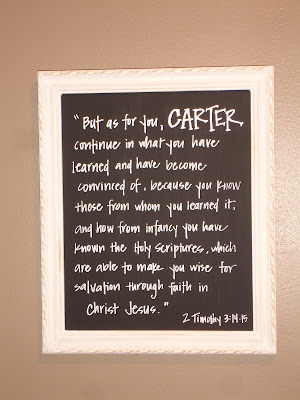 "But as for you, CARTER
continue in what you have
learned and have become
convinced of, because you know
those from whom you learned it,
and how from infancy you have
known the Holy Scriptures, which
are able to make you wise for
salvation through faith in
Christ Jesus."
2 Timothy 3:14-15